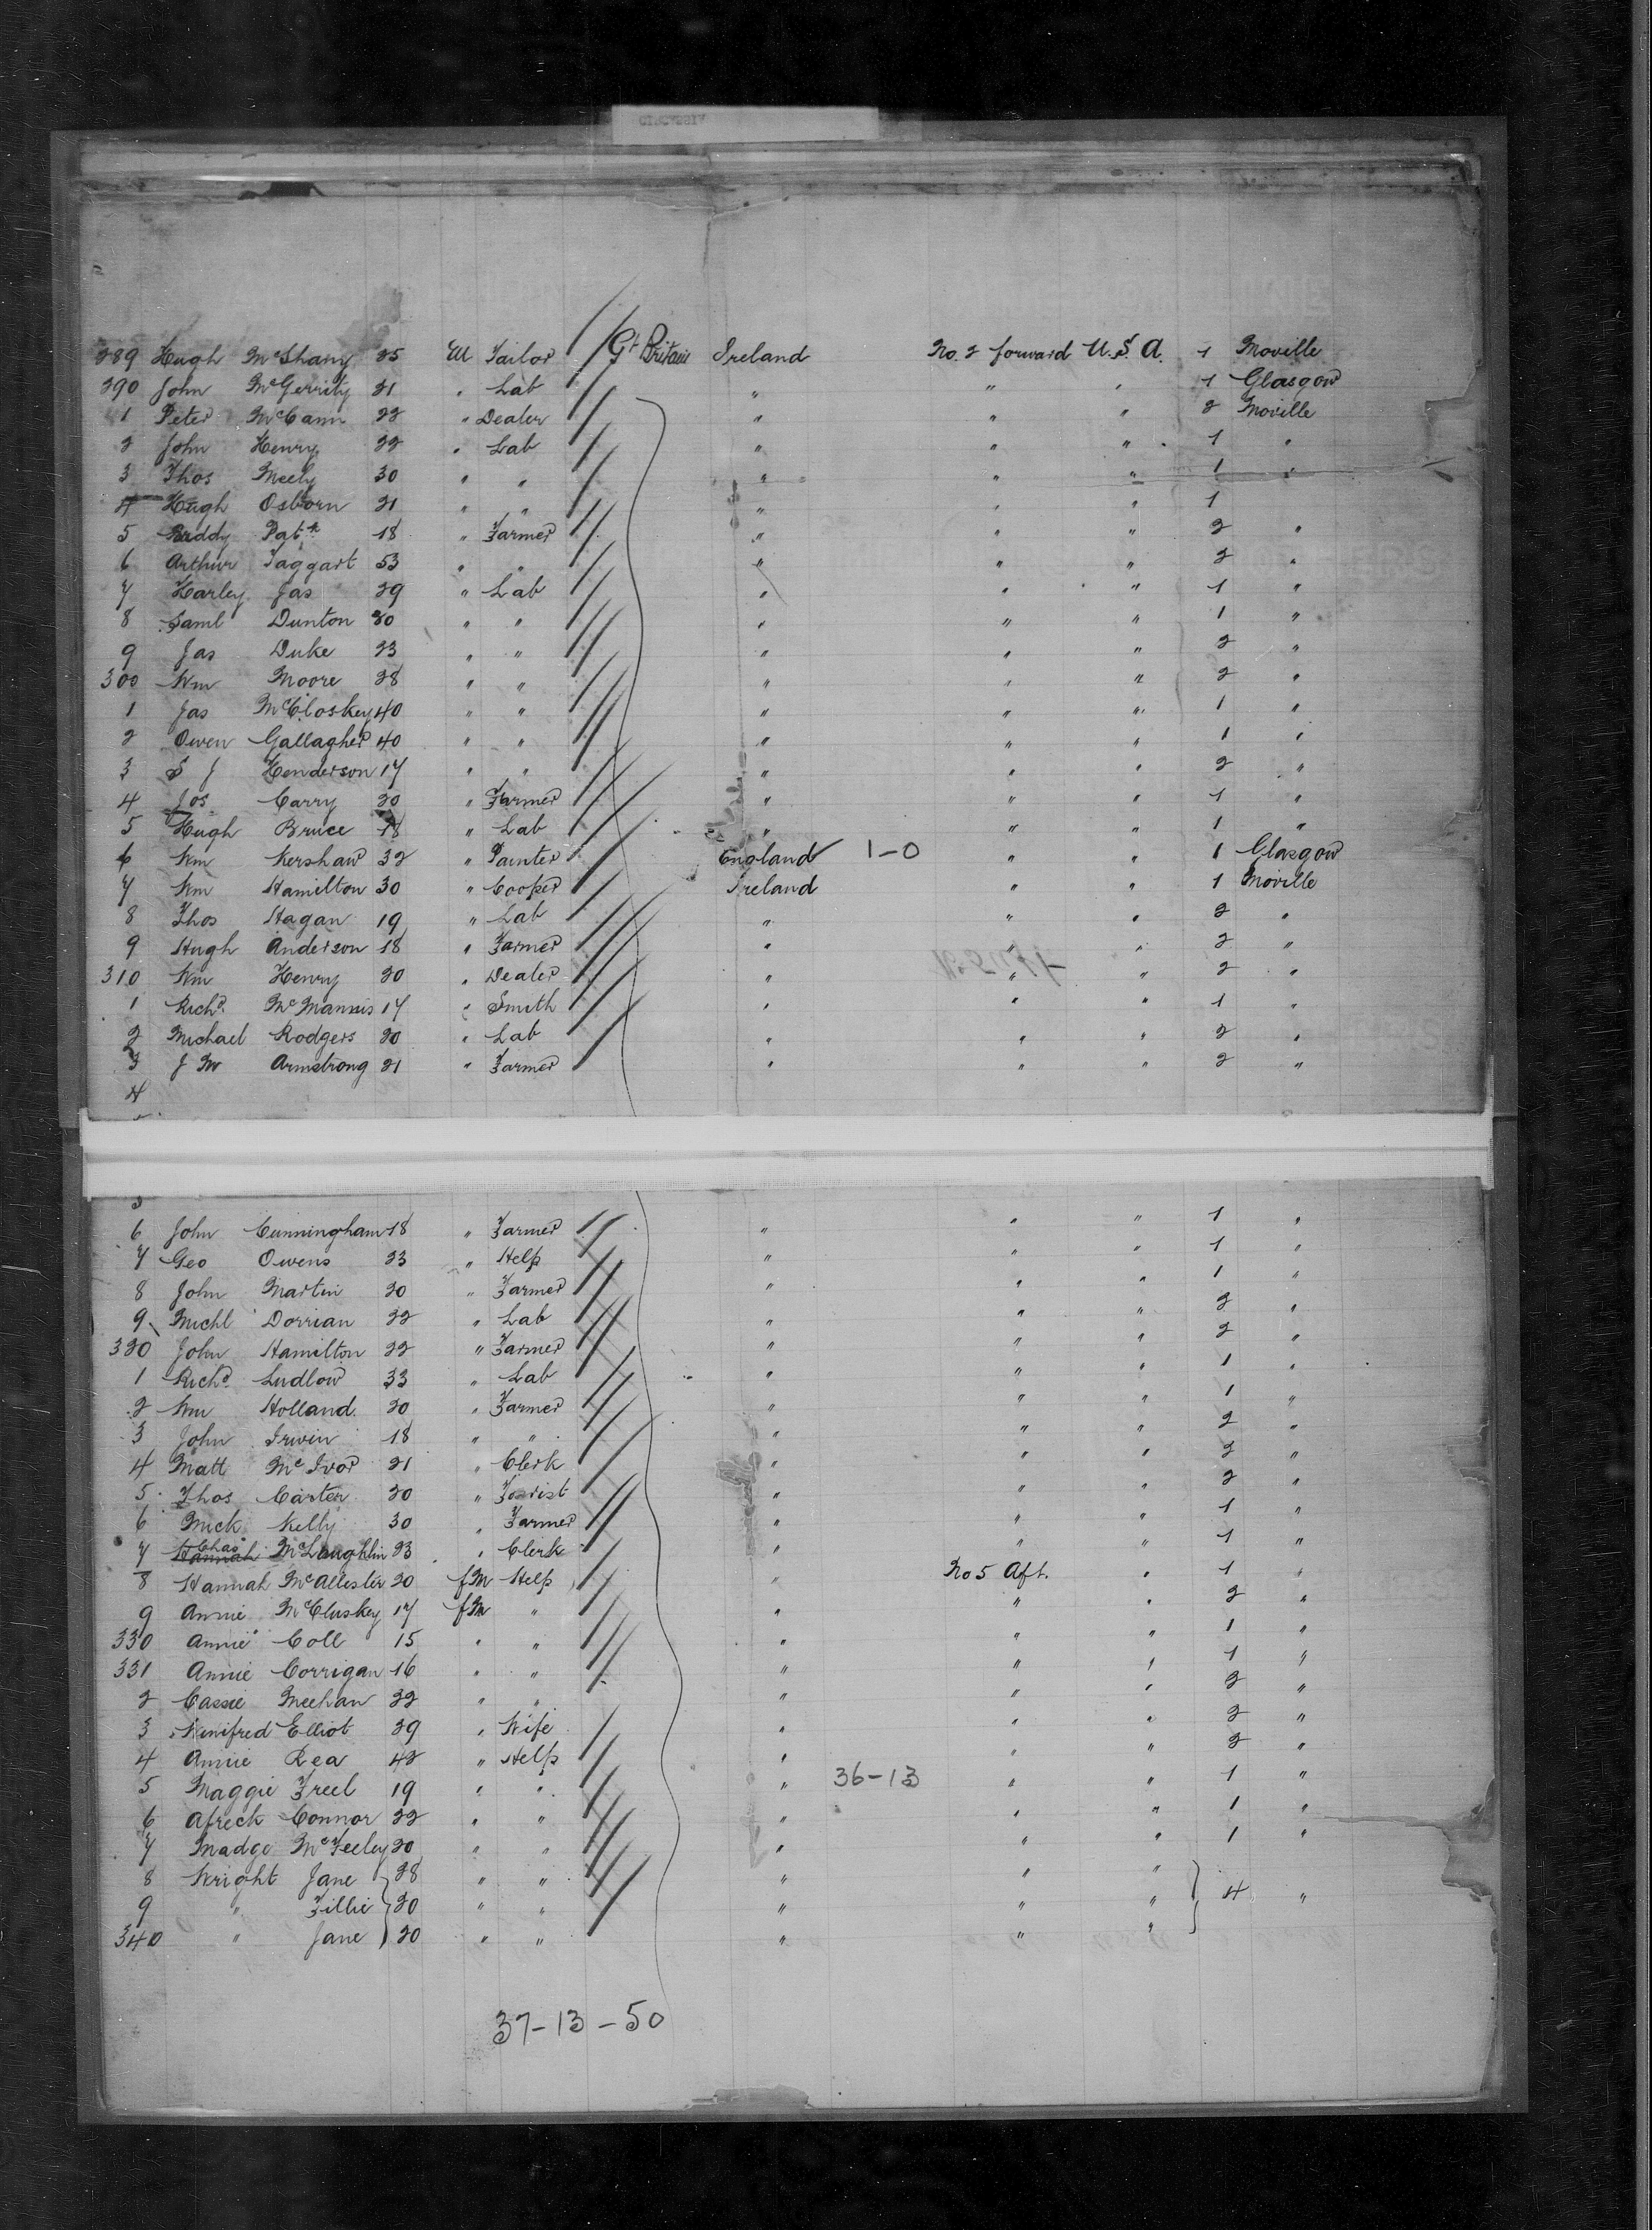 289 Hugh McShany 25 M Tailor Gt Britain Ireland No. 2 forward U.S.A. 1 Moville
290 John McGerrity 21 " Lab " " " 1 Glasgow
1 Peter McCann 22 " Dealer " " " 2 Moville
2 John Henry 22 " Lab " " " 1 "
3 Thos Meely 30 " " " " " 1 "
4 Hugh Osborn 21 " " " " " 1
5 Paddy Patk 18 " Farmer " " " 2 "
6 Arthur Taggart 53 " " " " " 2 "
7 Harley Jas 29 " Lab " " " 1 "
8 Saml Dunton 20 " " " " " 1 "
9 Jas Duke 23 " " " " " 2 "
300 Wm Moore 28 " " " " " 2 "
1 Jas McCloskey 40 " " " " " 1 "
2 Owen Gallagher 40 " " " " " 1 "
3 S J Henderson 17 " " " " " 2 "
4 Jos Carry 20 " Farmer " " " 1 "
5 Hugh Bruce 18 " Lab " " " 1 "
6 Wm Kershaw 32 " Painter England 1-0 " " 1 Glasgow
7 Wm Hamilton 30 " Cooper Ireland " " 1 Moville
8 Thos Hagan 19 " Lab " " " 2 "
9 Hugh Anderson 18 " Farmer " " " 2 "
310 Wm Henry 20 " Dealer " " " 2 "
1 Richd McMannis 17 " Smith " " " 1 "
2 Michael Rodgers 20 " Lab " " " 2 "
3 J W Armstrong 21 " Farmer " " " 2 "
4
5
6 John Cunningham 18 " Farmer " " " 1 "
7 Geo Owens 23 " Help " " " 1 "
8 John Martin 20 " Farmer " " " 1 "
9 Michl Dorrian 22 " Lab " " " 2 "
320 John Hamilton 22 " Farmer " " " 2 "
1 Richd Ludlow 33 " Lab " " " 1 "
2 Wm Holland 20 " Farmer " " " 1 "
3 John Irwin 18 " " " " " 2 "
4 Matt McIvor 21 " Clerk " " " 2 "
5 Thos Carten 20 " " " " 2 "
6 Mick Kelly 30 " Farmer " " " 1 "
7 Hannah Chas McLaughlin 23 " Clerk " " " 1 "
8 Hannah McAllester 20 fM Help " No 5 Aft. " 1 "
9 Annie McCluskey 17 fM " " " " 2 "
330 Annie Coll 15 " " " " " 1 "
331 Annie Corrigan 16 " " " " " 1 "
2 Cassie Meehan 22 " " " " " 2 "
3 Winifred Elliot 29 " Wife " " " 2 "
4 Annie Rea 42 " Help " " " 2 "
5 Maggie Freel 19 " " " 36-13 " " 1 "
6 Afreck Connor 22 " " " " " 1 "
7 Madge McFeeley 20 " " " " " 1 "
8 Wright Jane 28 " " " " "
9 " Tillie 20 " " " " " 4 "
340 " Jane 20 " " " " "
37-13-50